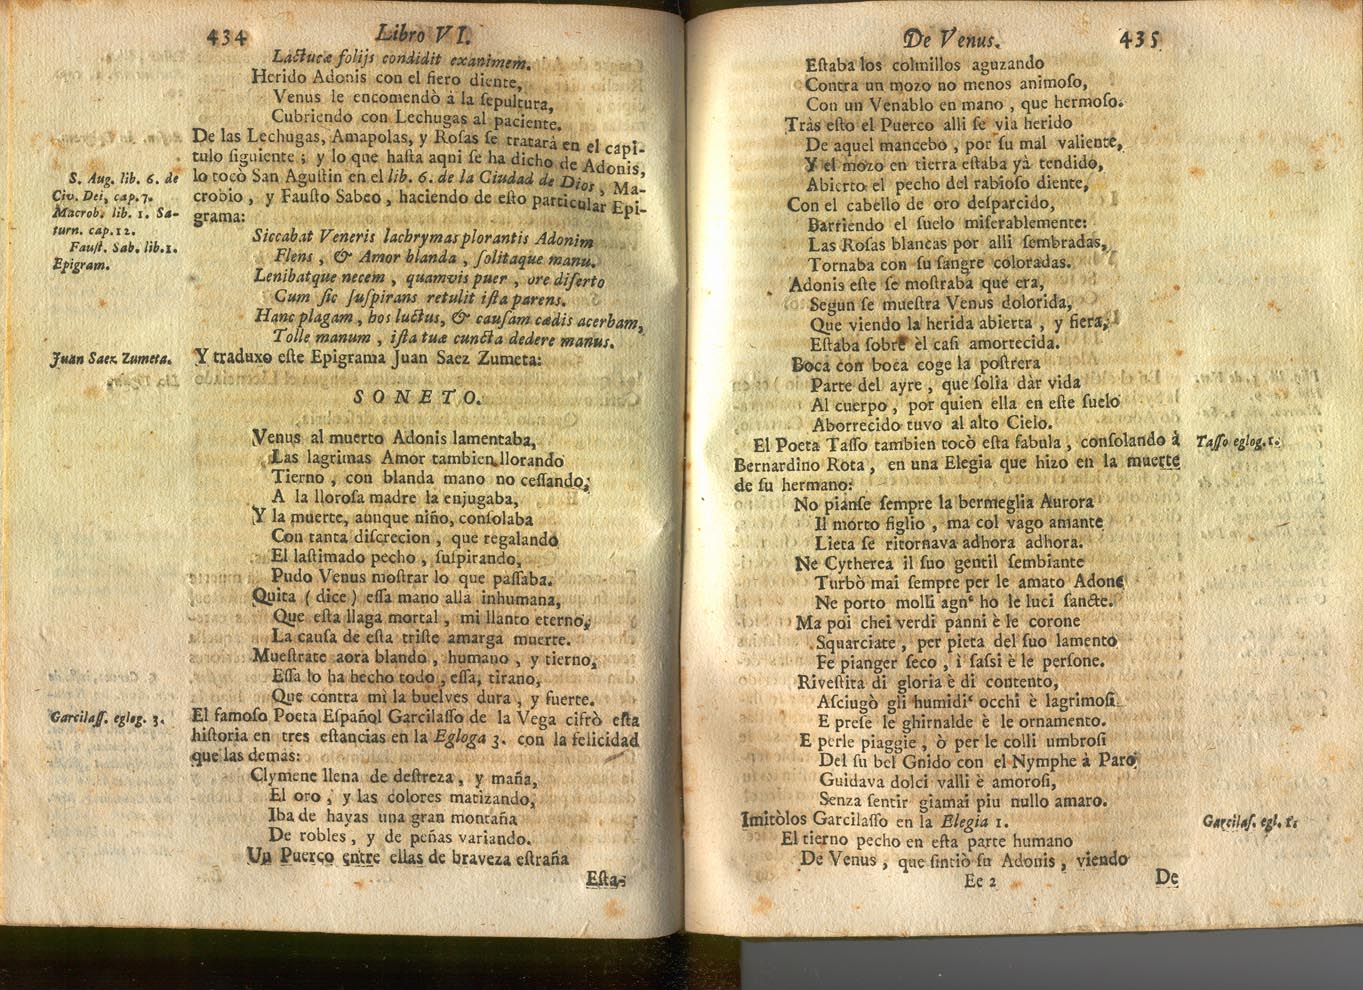 434 Libro VI.
Lactucæ folijs condidit exanimem.
Herido Adonis con el fiero diente,
Venus le encomendò à la sepultura,
Cubriendo con Lechugas al paciente.
De las Lechugas, Amapolas, y Rosas se tratarà en el capi-
tulo siguiente; y lo que hasta aqui se ha dicho de Adonis,
lo tocò San Agustin en el lib. 6. de la Ciudad de Dios, Ma-
crobio, y Fausto Sabeo, haciendo de esto particular Epi-
grama:
S. Aug. lib. 6. de
Civ. Dei, cap. 7.
Macrob. lib. 1. Sa-
turn. cap. 12.
Faust. Sab. lib. 1.
Epigram.
Siccabat Veneris lachrymas plorantis Adonim
Flens, & Amor blanda, solitaque manu.
Lenibatque necem, quamvis puer, ore diserto
Cum sic suspirans retulit ista parens.
Hanc plagam, hos luctus, & causam cædis acerbam,
Tolle manum, ista tuæ cuncta dedere manus.
Y traduxo este Epigrama Juan Saez Zumeta:
Juan Saez Zumeta.
SONETO.
Venus al muerto Adonis lamentaba,
Las lagrimas Amor tambien llorando
Tierno, con blanda mano no cessando,
A la llorosa madre la enjugaba,
Y la muerte, aunque niño, consolaba
Con tanta discrecion, que regalando
El lastimado pecho, suspirando,
Pudo Venus mostrar lo que passaba.
Quita (dice) essa mano allà inhumana,
Que esta llaga mortal, mi llanto eterno,
La causa de esta triste amarga muerte.
Muestrate aora blando, humano, y tierno,
Essa lo ha hecho todo, essa, tirano,
Que contra mì la buelves dura, y fuerte.
El famoso Poeta Español Garcilasso de la Vega cifrò esta
historia en tres estancias en la Egloga 3. con la felicidad
que las demàs:
Garcilass. egleg. 3.
Clymene llena de destreza, y maña,
El oro, y las colores matizando,
Iba de hayas una gran montaña
De robles, y de peñas variando.
Un Puerco entre ellas de braveza estraña
Esta-
De Venus. 435
Estaba los colmillos aguzando
Contra un mozo no menos animoso,
Con un Venablo en mano, que hermoso.
Tràs esto el Puerco alli se via herido
De aquel mancebo, por su mal valiente,
Y el mozo en tierra estaba yà tendido,
Abierto el pecho del rabioso diente,
Con el cabello de oro desparcido,
Barriendo el suelo miserablemente:
Las Rosas blancas por alli sembradas,
Tornaba con su sangre coloradas.
Adonis este se mostraba que era,
Segun se muestra Venus dolorida,
Que viendo la herida abierta, y fiera,
Estaba sobre èl casi amortecida.
Boca con boca coge la postrera
Parte del ayre, que solia dàr vida
Al cuerpo, por quien ella en este suelo
Aborrecido tuvo al alto Cielo.
El Poeta Tasso tambien tocò esta fabula, consolando à
Bernardino Rota, en una Elegia que hizo en la muerte
de su hermano:
Tasso eglog. 1.
No pianse sempre la bermeglia Aurora
Il morto figlio, ma col vago amante
Lieta se ritornava adhora adhora.
Ne Cytherea il suo gentil sembiante
Turbò mai sempre per le amato Adone
Ne porto molli agne ho le luci sancte.
Ma poi chei verdi panni è le corone
Squarciate, per pieta del suo lamento
Fe pianger seco, i sassi è le persone.
Rivestita di gloria è di contento,
Asciugò gli humidie occhi è lagrimosi
E prese le ghirnalde è le ornamento.
E perle piaggie, ò per le colli umbrosi
Del su bel Gnido con el Nymphe à Paro,
Guidava dolci valli è amorosi,
Senza sentir giamai piu nullo amaro.
Imitòlos Garcilasso en la Elegia 1.
Garcilas. egl. 1.
El tierno pecho en esta parte humano
De Venus, que sintiò su Adonis, viendo
Ee 2 De